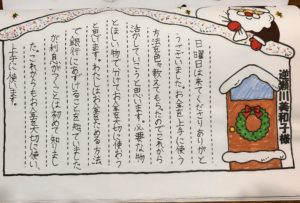 逆瀬川美和子様
日曜日は来てくださりありがと
うございました。お金を上手に使う
方法を色々教えてもらったのでこれから
活かしていこうと思います。必要な物
とほしい物で分けてお金を大切に使おう
と思います。わたしはお金をためる方法
で銀行にあずけることを知っていました
が利息がつくことは初めて知りまし
た。これからもお金を大切に使い、
上手に使います。